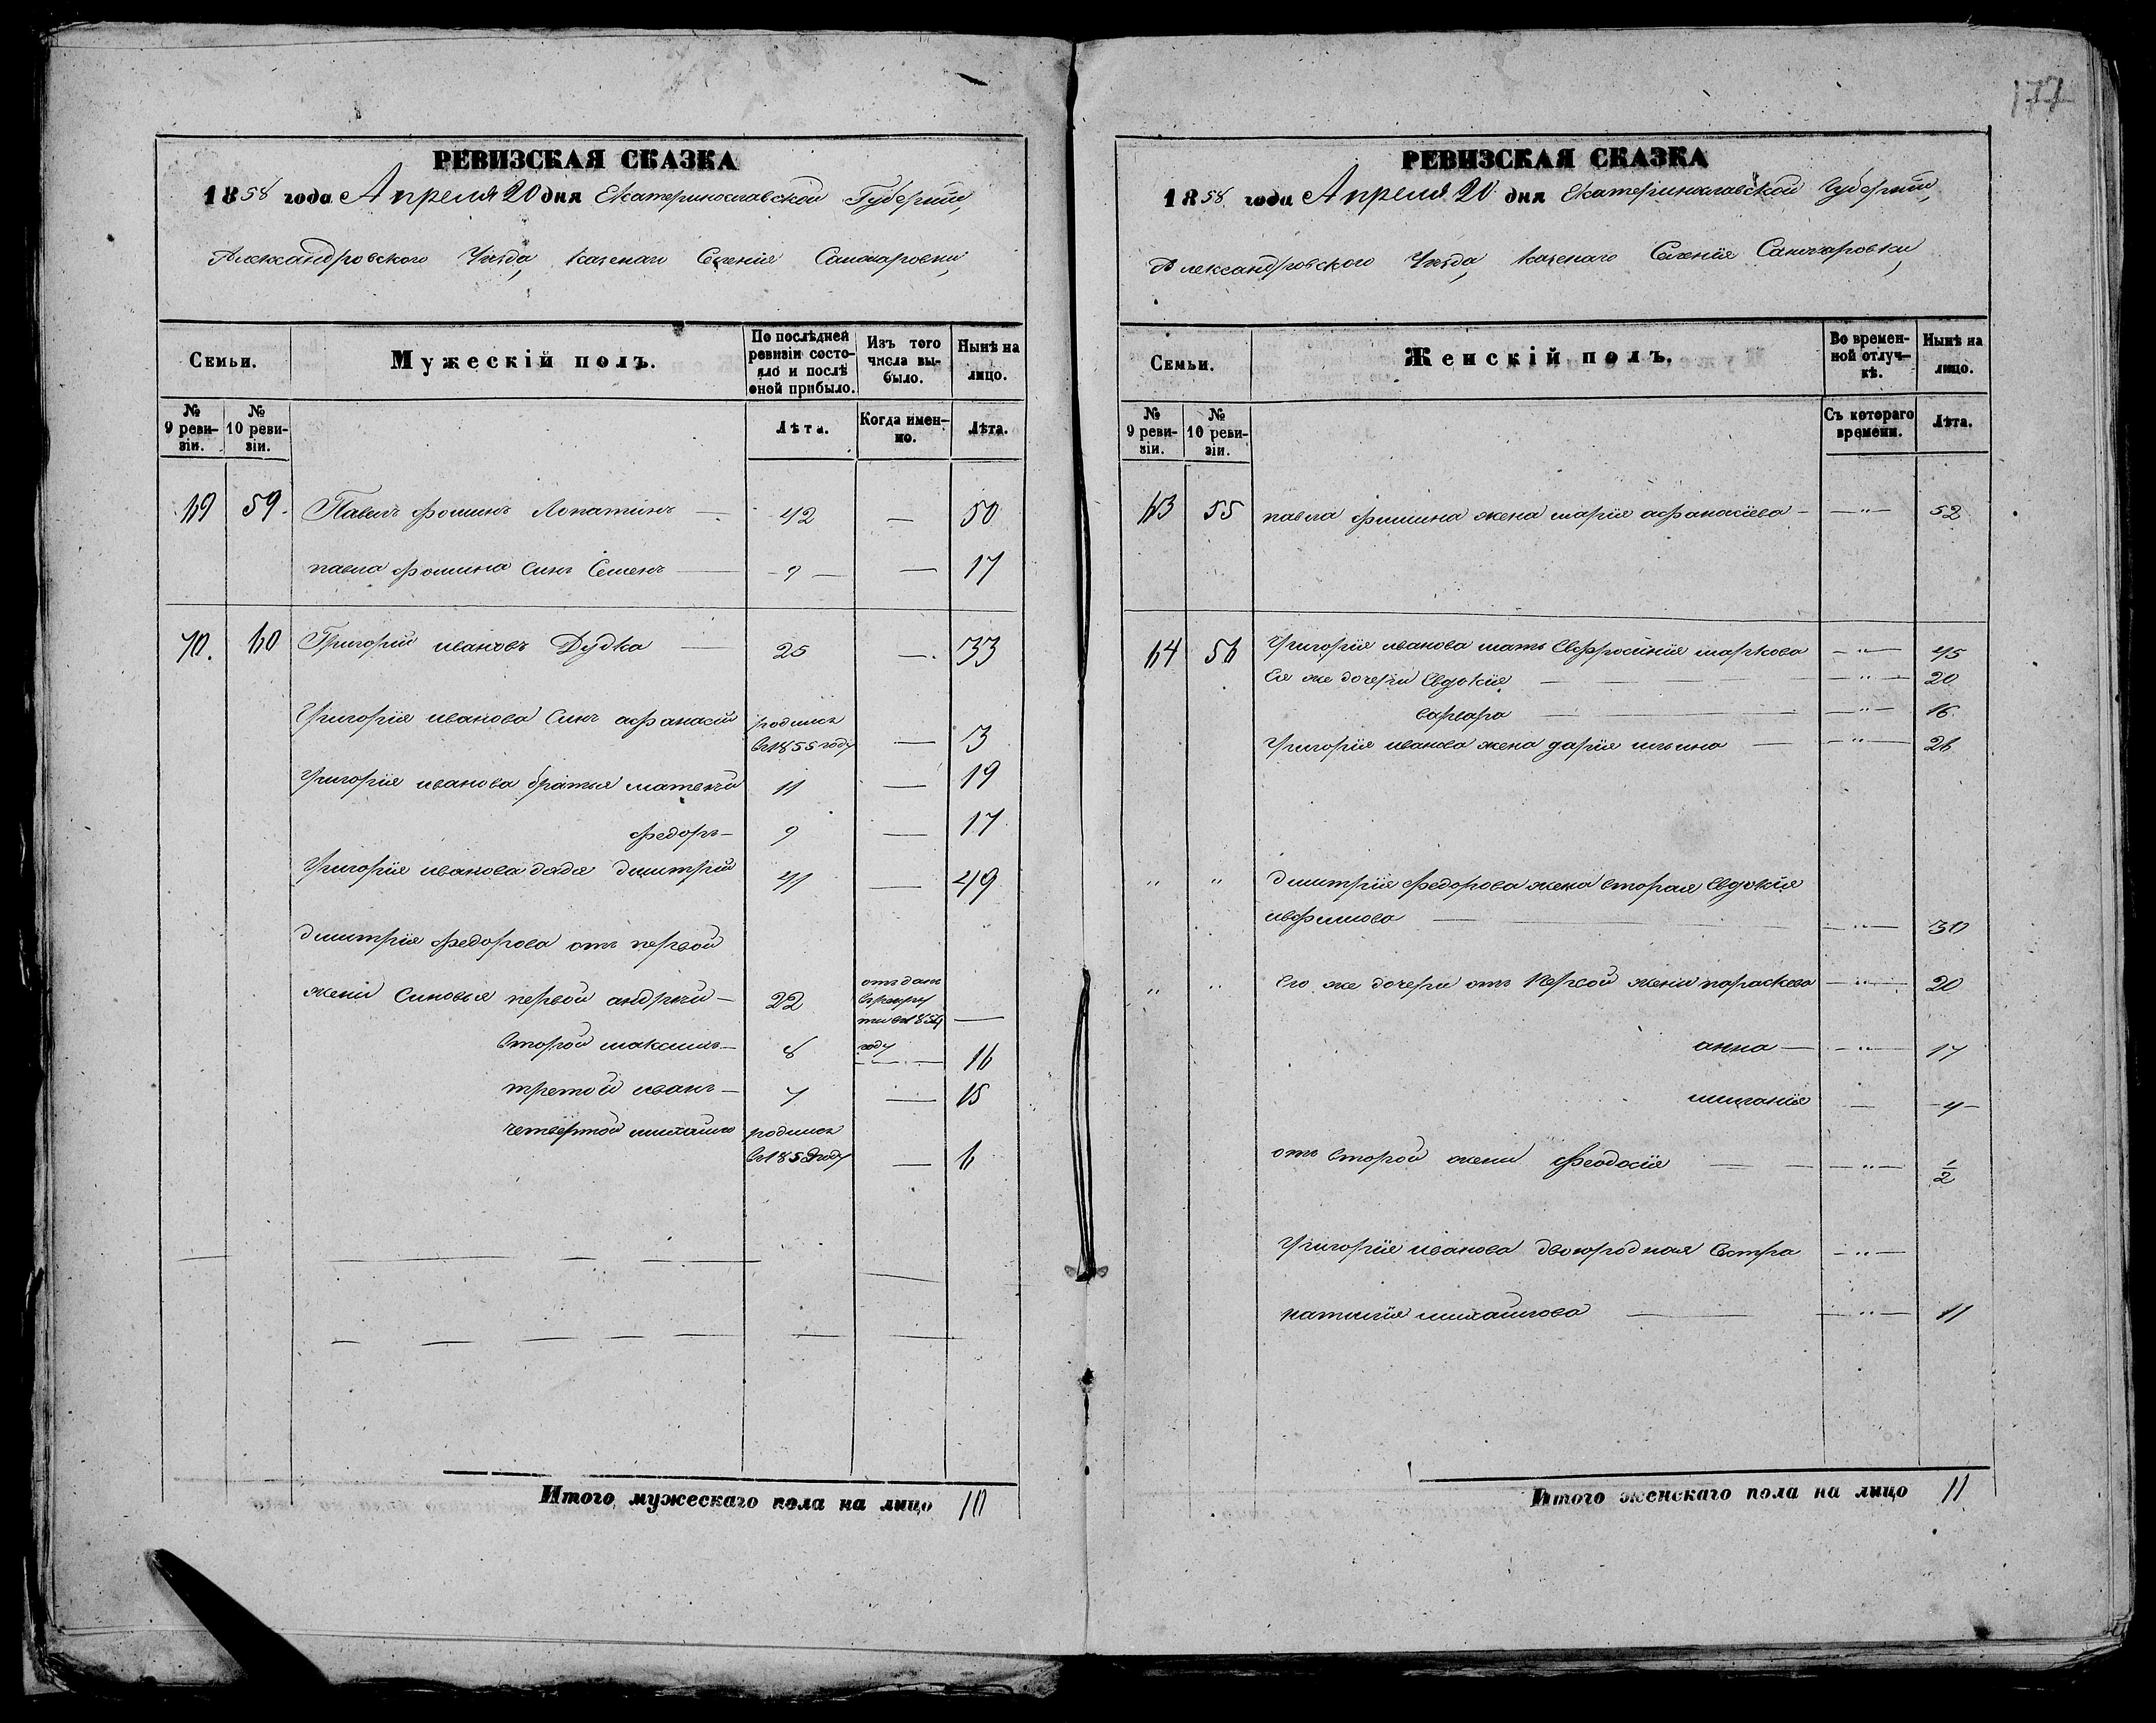 177
РЕВИЗСКАЯ СКАЗКА
1858 года Апреля 20 дня Екатеринославской Губернии,
Александровского Уезда, казенаго Селения Санжаровки,
Семьи. Мужескій полъ. По послѣдней ревизіи состояло и послѣ оной прибыло. Изъ того числа выбыло. Нынѣ на лицо.
№ 9 ревизіи. № 10 ревизіи. Лѣта. Когда именно. Лѣта.
69 59. Павелъ фоминъ Лопатинъ — 42 — 50
павла фомина Синъ Семенъ — 9 — — 17
70. 60 Григорий ивановъ Дудка — 25 — 33
Григорія иванова Синъ афанасій родился в 1855 году — 3
Григорія иванова братья матвей 11 — 19
федоръ — 9 — 17
Григорія иванова дядя дмитрій 41 — 49
дмитрія федорова отъ первой
жени Синовья первой андрѣй — 22 отъданъ в рекруты в 1854 году —
второй максимъ — 8 — 16
третой иванъ — 7 — 15
четвертой михайло родился в 1852 году — 6
Итого мужескаго пола на лицо 10
РЕВИЗСКАЯ СКАЗКА
1858 года Апреля 20 дня Екатеринославской Губернии,
Александровского Уезда, казенаго Селения Санжаровки,
Семьи. Женскій полъ. Во временной отлучкѣ. Нынѣ на лицо.
№ 9 ревизіи. № 10 ревизіи. Съ котораго времени. Лѣта.
63 55 павла фомина жена марія афанасіева — — " — 52
64 56 Григорія иванова мать Евфросинія маркова — " — 45
Ея же дочери Евдокія — — " — 20
варвара — — " — 16
Григорія иванова жена дарія ильина — — " — 26
" " дмитрія федорова жена вторая Евдокія
ивфимова — — " — 30
" " Его же дочери отъ Первой жени параскева — " — 20
анна — — " — 17
миланія — — 4 —
отъ второй жени феодосія — — " — 1/2
Григорія иванова двоюродная Сестра — " —
наталія михайлова — — " — 11
Итого женскаго пола на лицо 11